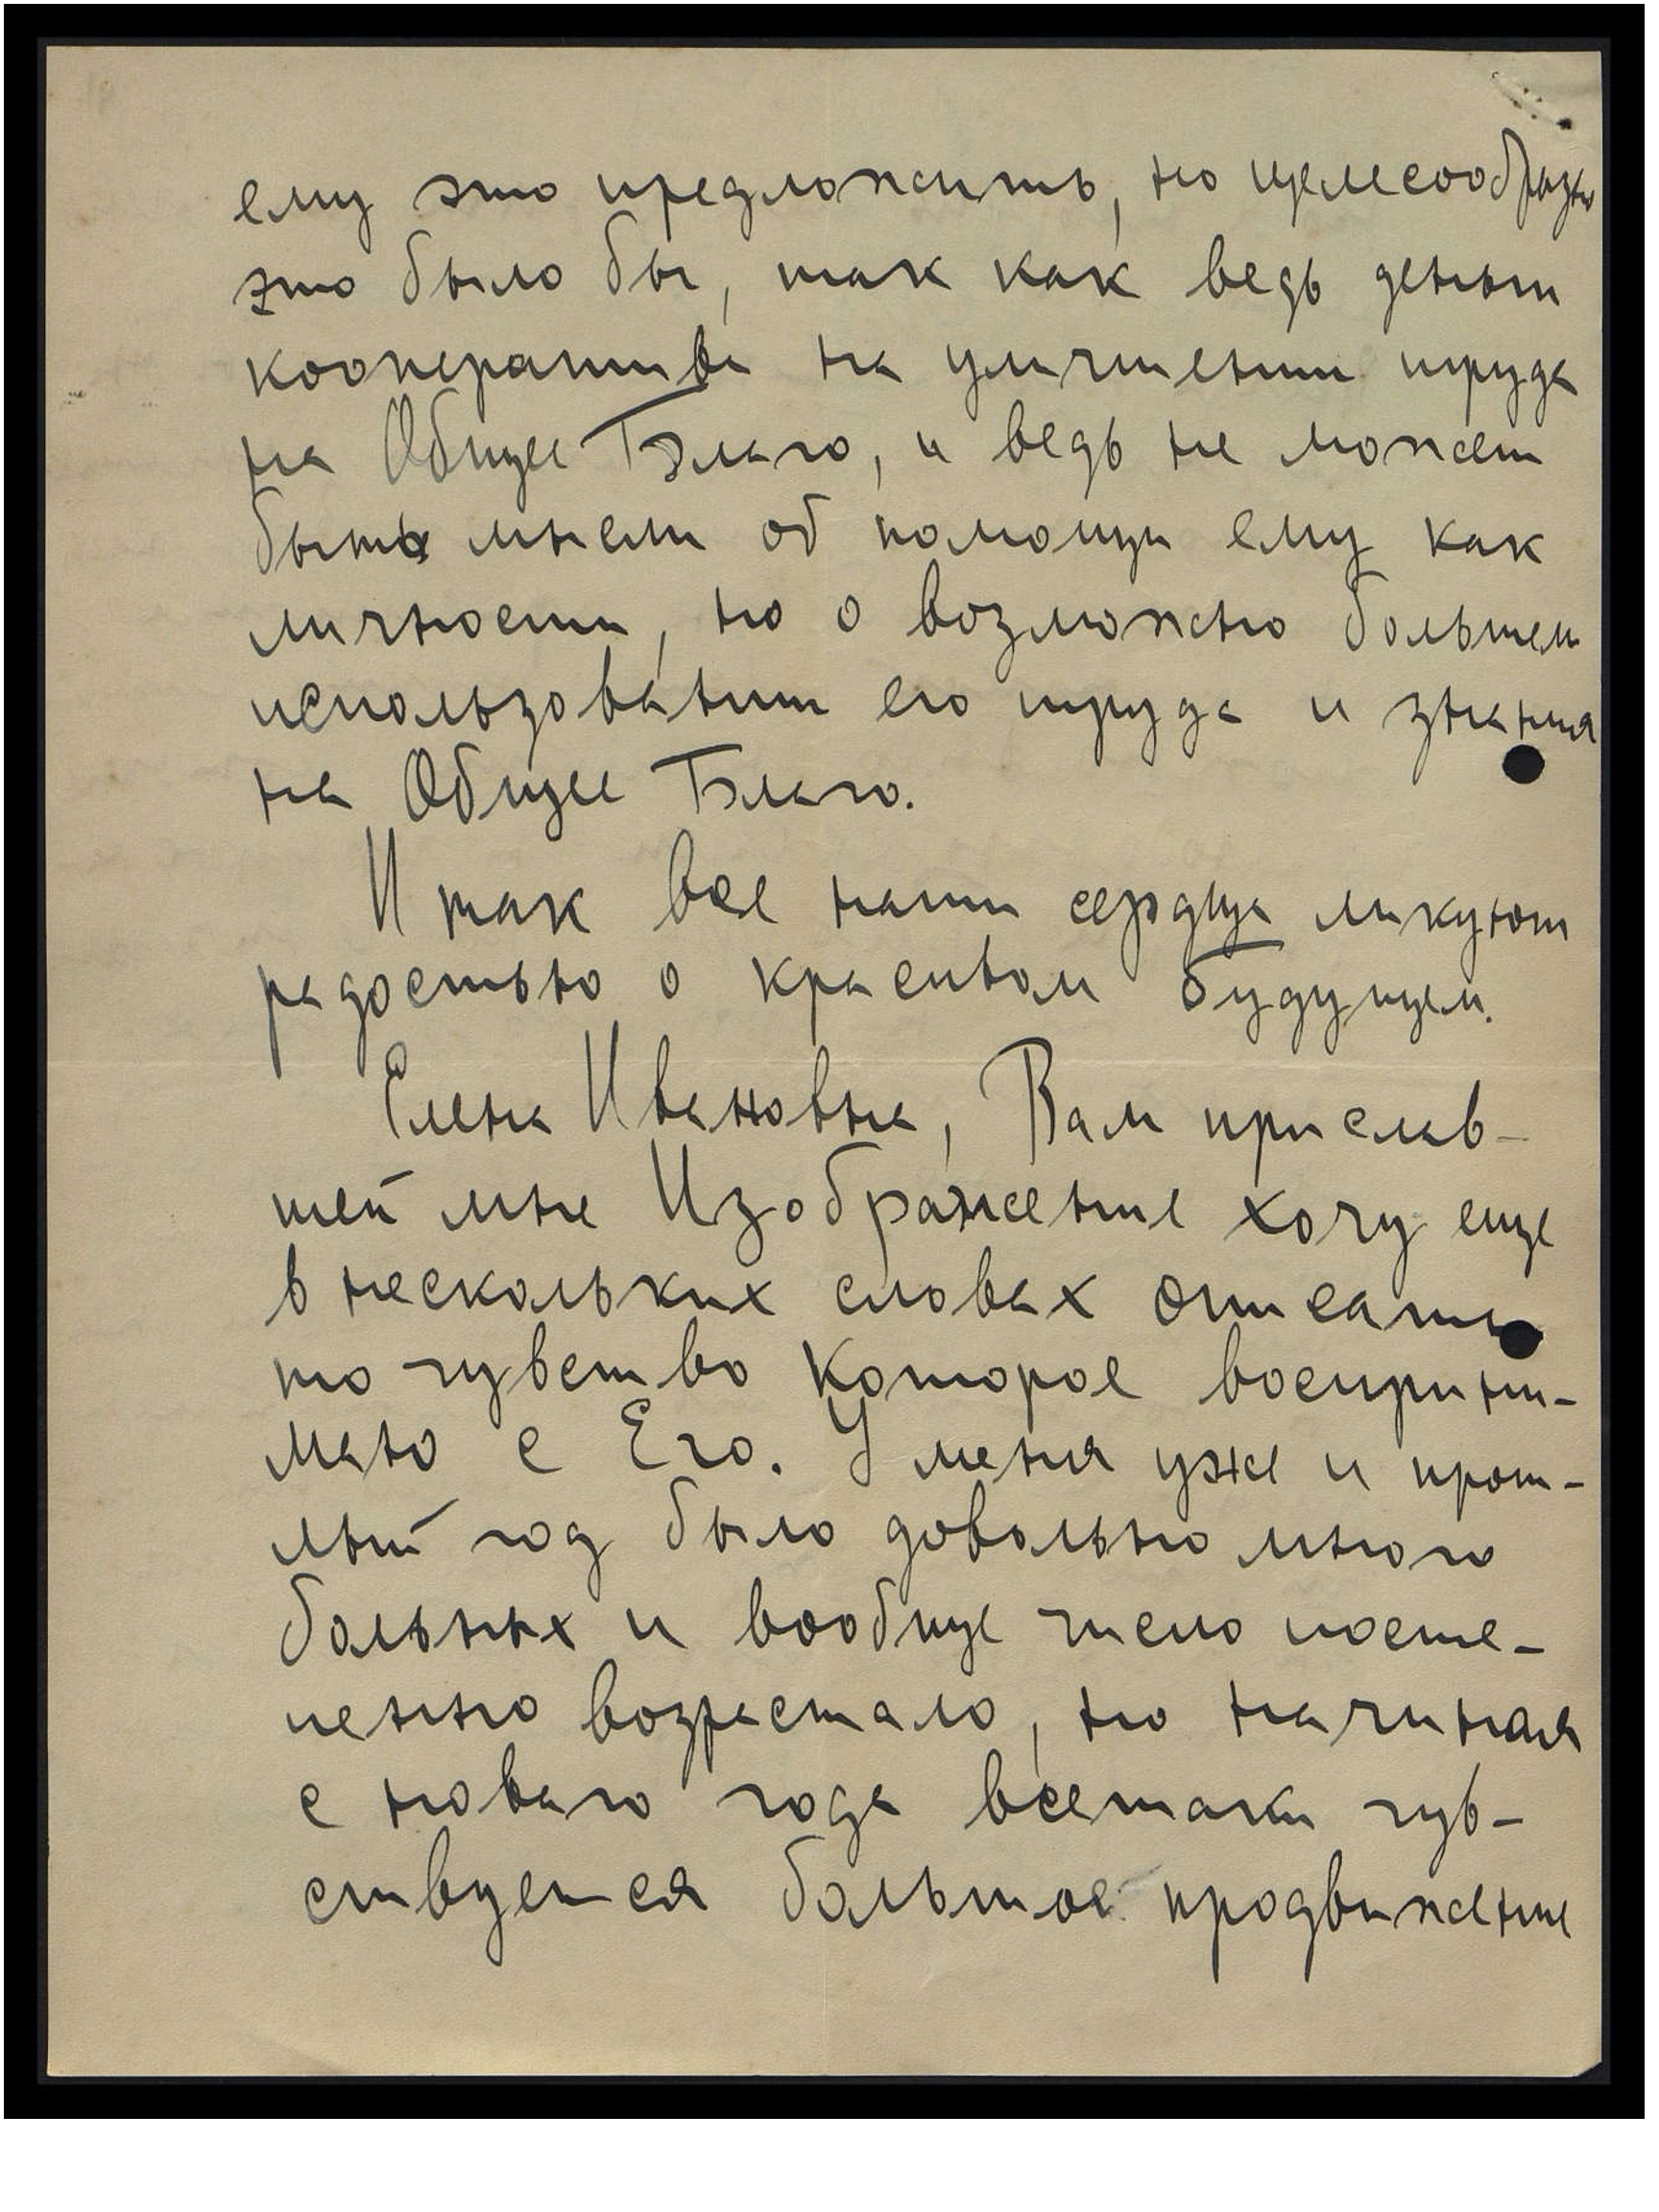 ему это предложить, но целесообразно
это было бы, так как ведь деньги
кооператива на улучшении труда
на Общее Благо, и ведь не может
быть мысли об помощи ему как
личности, но о возможно большем
использовании его труда и знания
на Общее Благо.
И так все наши сердца ликуют
радостью о красивом будущем.
Елена Ивановна, Вам прислав-
шей мне Изображение хочу еще
в нескольких словах описать
то чувство которое восприни-
маю с Его. У меня уже и прош-
лый год было довольно много
больных и вообще число посте-
пенно возрастало, но начиная
с новаго года всетаки чув-
ствуется большое продвижение